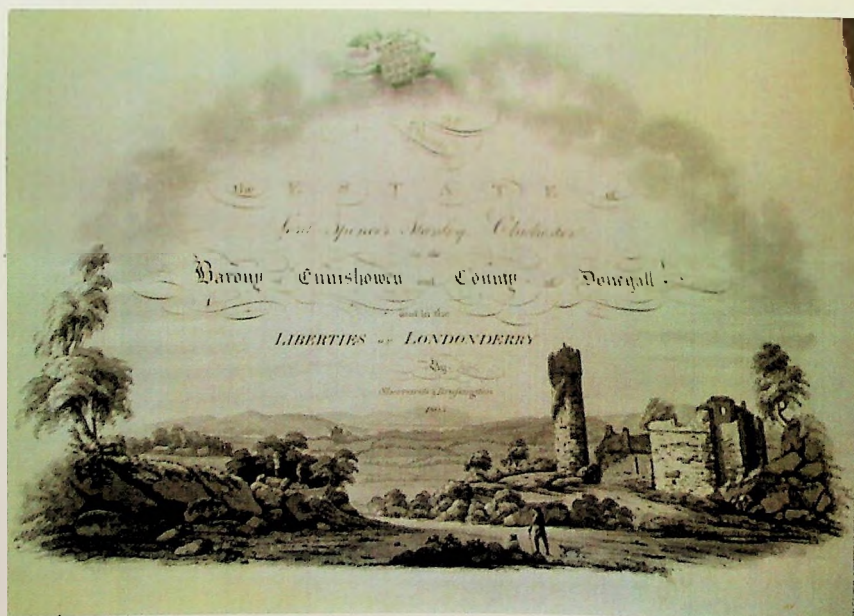 the ESTATE of
Lord Spencer Stanley Chichester
in the
Barony of Ennishowen and County of Donegall
and in the
LIBERTIES OF LONDONDERRY
By
Sherrard &